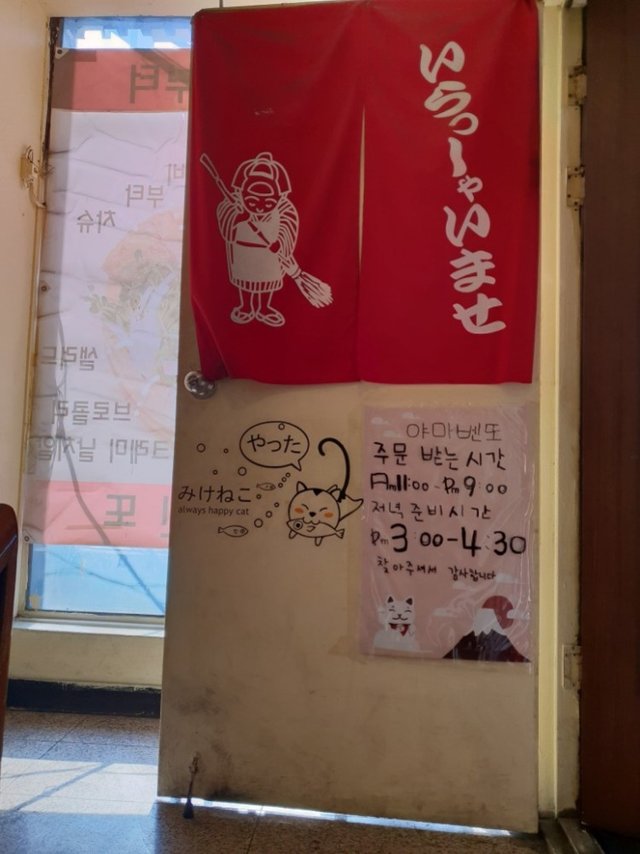 いらっしゃいませ
やった
みけねこ
always happy cat
야마벤또
주문 받는 시간
Am11:00-Pm9:00
저녁준비시간
Pm3:00-4:30
찾아주셔서 감사합니다
부터
부터
차슈
샐러드
브로콜리
크레미 날치알